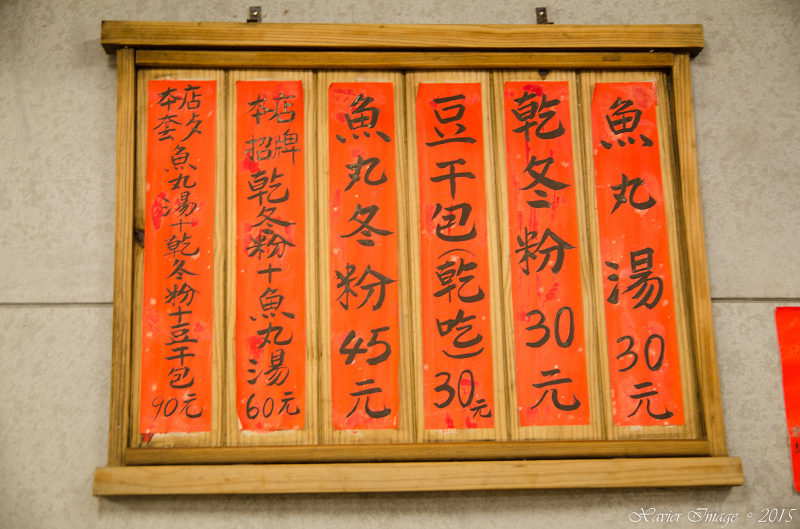 魚丸湯30元
乾冬粉30元
豆干包(乾吃)30元
魚丸冬粉45元
本店招牌乾冬粉+魚丸湯60元
本店套歺魚丸湯+乾冬粉+豆干包90元
Xavier Image ° 2015